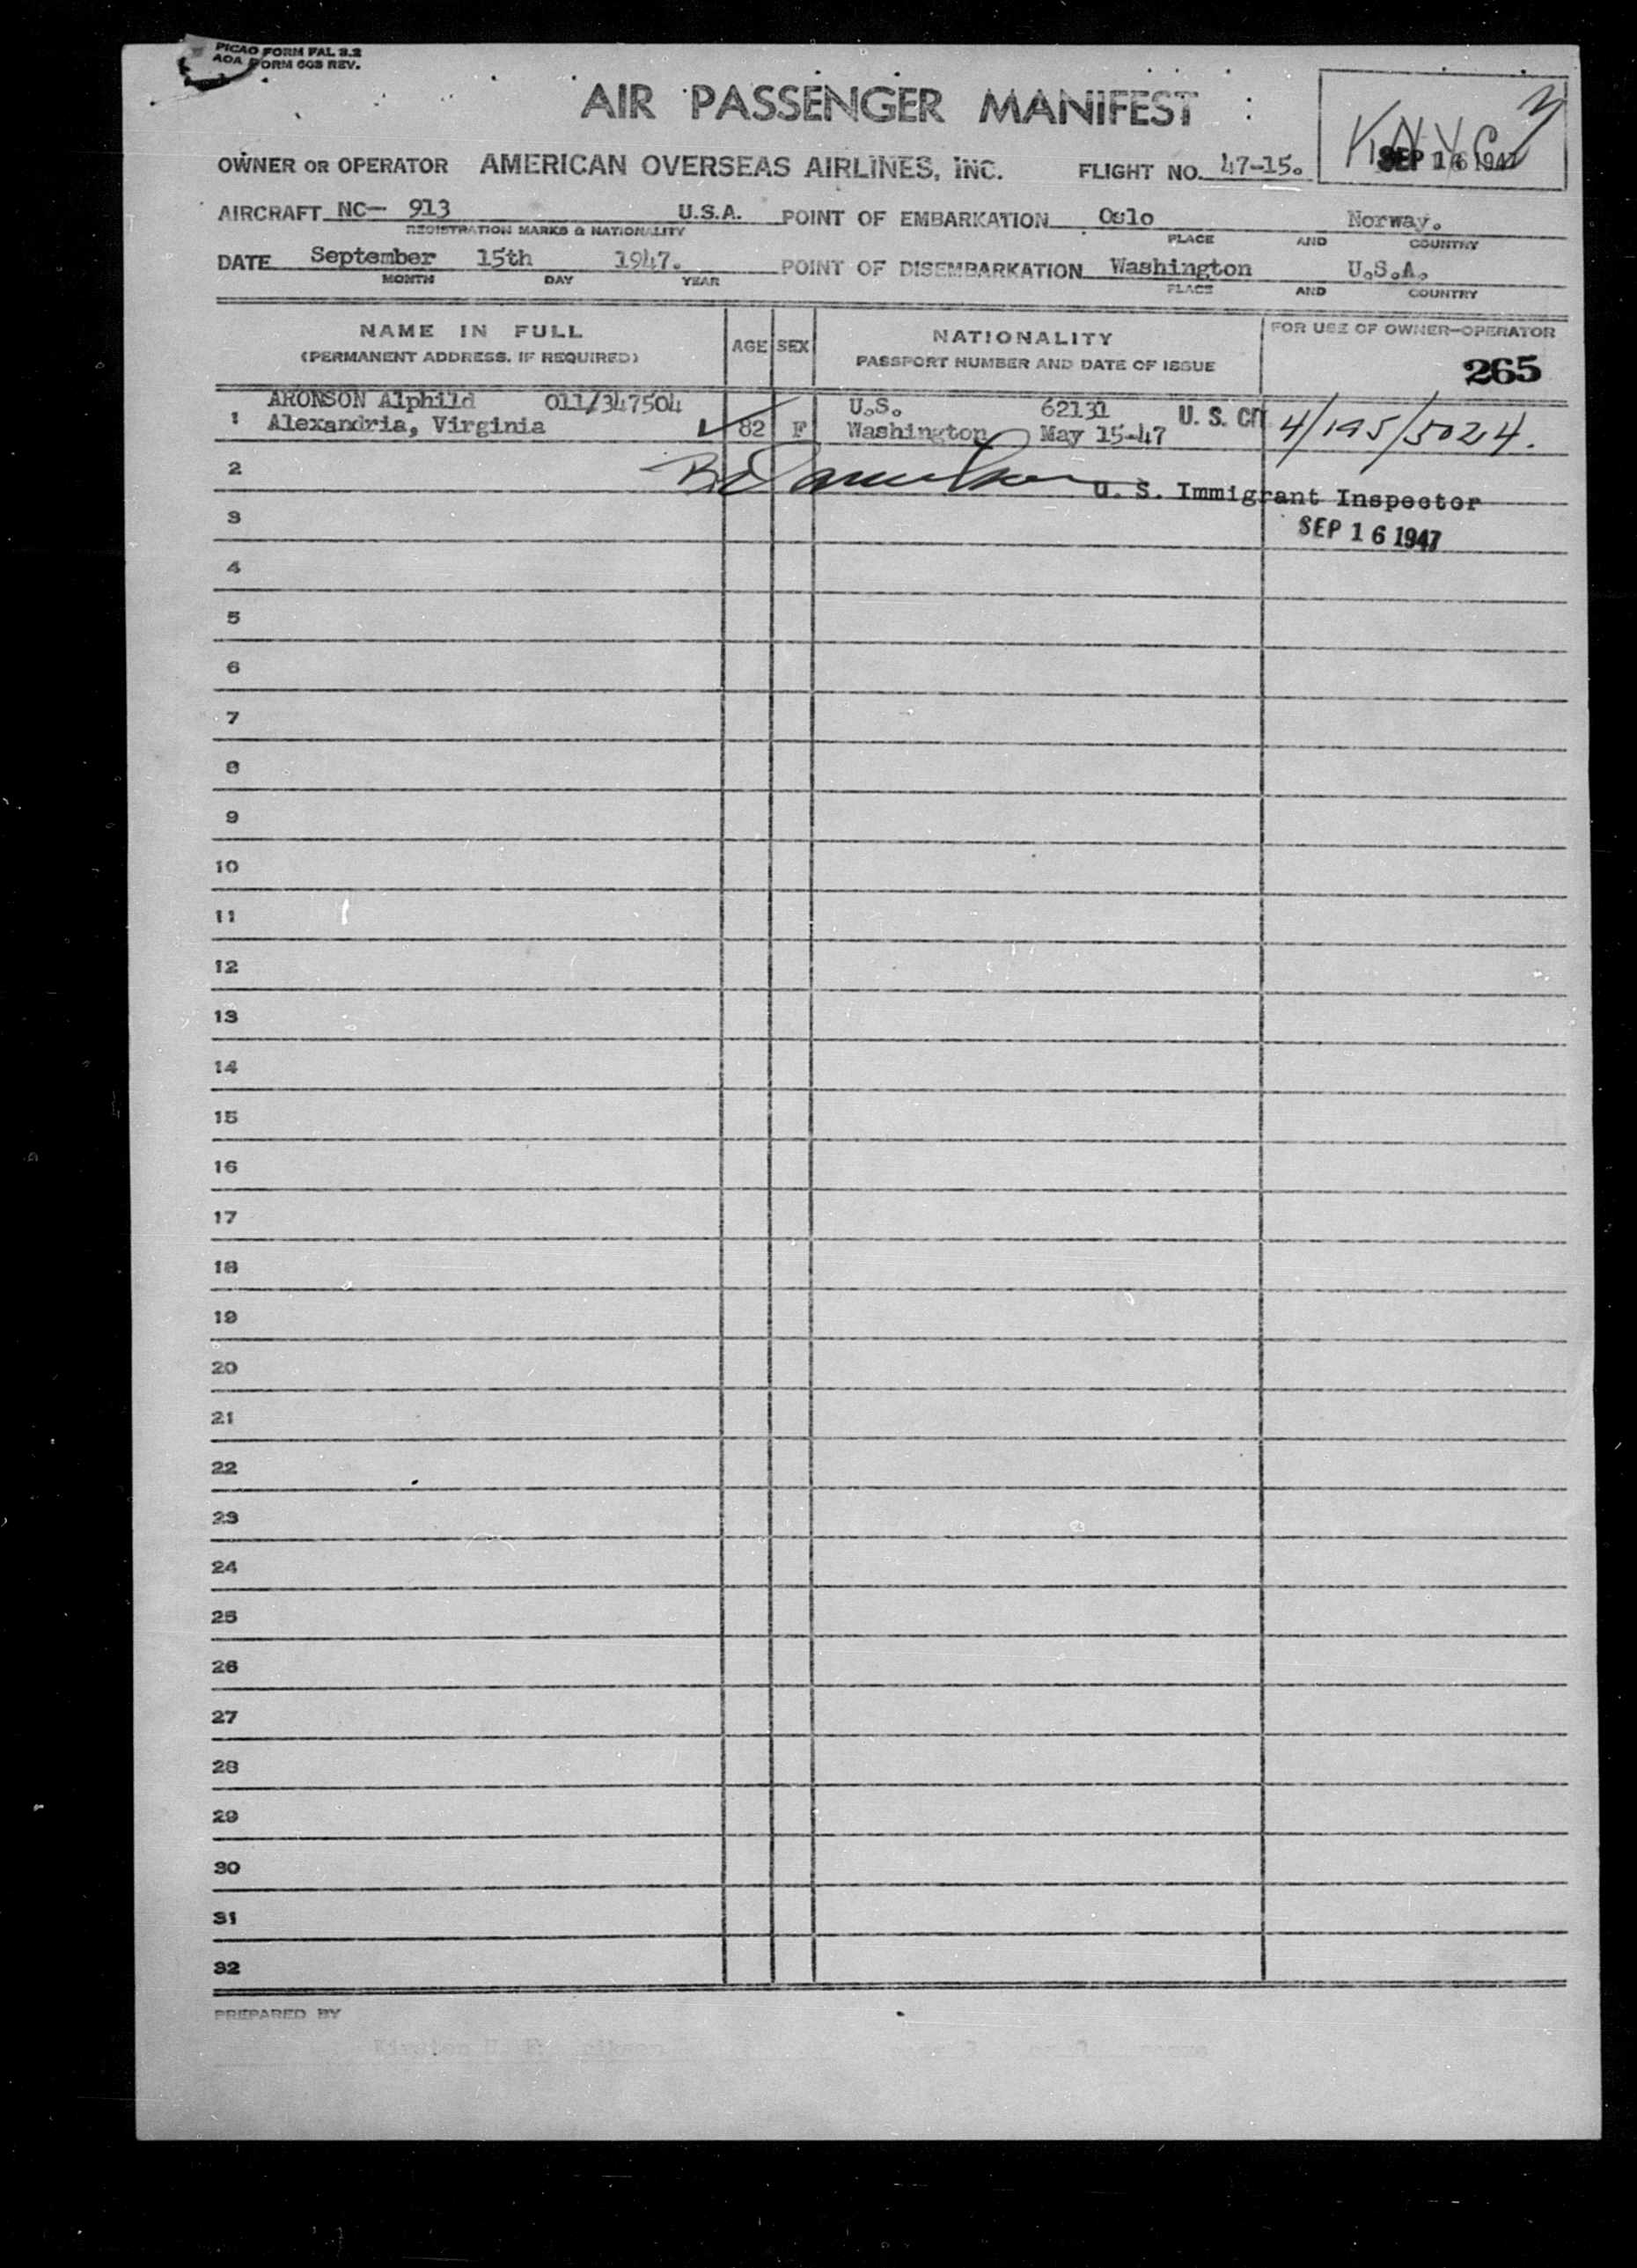 PICAO FORM FAL 3.2
AOA FORM 603 REV.
AIR PASSENGER MANIFEST
KNYC 3
SEP 16 1947
OWNER OR OPERATOR AMERICAN OVERSEAS AIRLINES, INC. FLIGHT NO. 47-15.
AIRCRAFT NC- 913 U.S.A. POINT OF EMBARKATION Oslo Norway.
REGISTRATION MARKS & NATIONALITY PLACE AND COUNTRY
DATE September 15th 1947. POINT OF DISEMBARKATION Washington U.S.A.
MONTH DAY YEAR PLACE AND COUNTRY
NAME IN FULL
(PERMANENT ADDRESS, IF REQUIRED)
AGE SEX
NATIONALITY
PASSPORT NUMBER AND DATE OF ISSUE
FOR USE OF OWNER-OPERATOR
265
ARONSON Alphild 011/347504 U.S. 62131 U. S. CIT
1 Alexandria, Virginia 82 F Washington May 15-47 4/195/5024.
2
U. S. Immigrant Inspector
3
SEP 16 1947
4
5
6
7
8
9
10
11
12
13
14
15
16
17
18
19
20
21
22
23
24
25
26
27
28
29
30
31
32
PREPARED BY